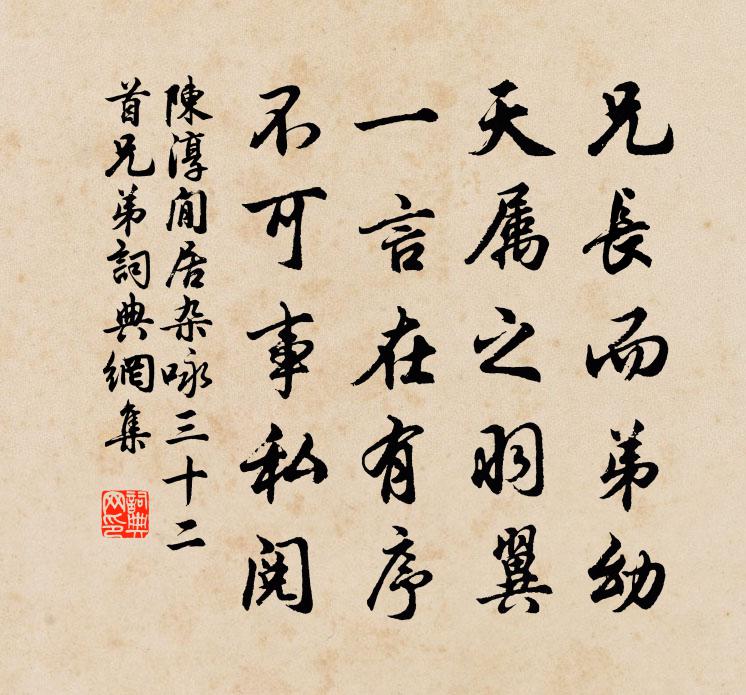 兄長而弟幼
天属之羽翼
一言在有序
不可事私阋
陳淳閒居杂咏三十二
首兄弟詞典網集
詞典
网印